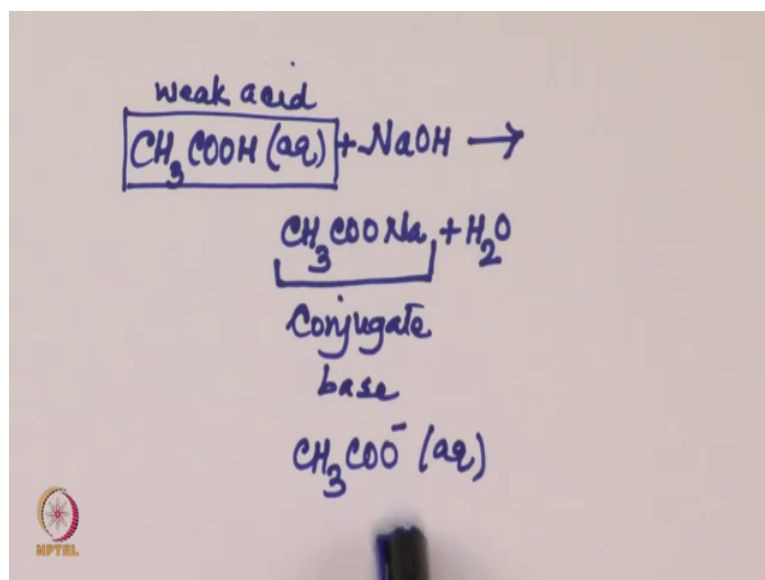 weak acid
CH₃COOH (aq) + NaOH →
CH₃COONa + H₂O
Conjugate
base
CH₃COO⁻ (aq)
NPTEL